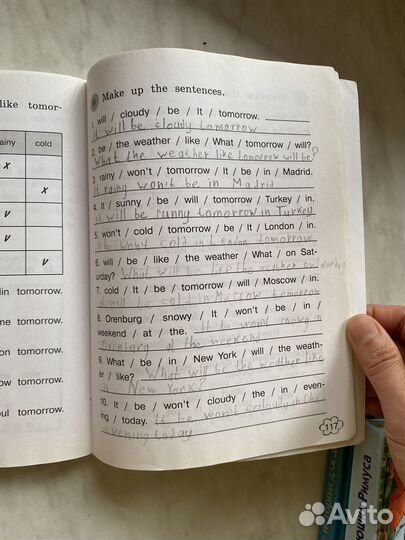 8 Make up the sentences.
1. will / cloudy / be / It / tomorrow.
It will be cloudy tomorrow
2. be / the weather / like / What / tomorrow / will?
What the weather like tomorrow will be?
3. rainy / won't / tomorrow / It / be / in / Madrid.
It rainy won't be in Madrid
4. It / sunny / be / will / tomorrow / Turkey / in.
It will be tomorrow in Turkey
5. won't / cold / tomorrow / be / It / London / in.
won't cold in London tomorrow
6. will / be / like / the weather / What / on Sat-
urday? What will be like the weather on Saturday
7. cold / It / be / tomorrow / will / Moscow / in.
It will be cold in Moscow tomorrow
8. Orenburg / snowy / It / won't / be / in /
weekend / at / the. It be wont snowy in
Orenburg at the weekend
9. What / be / in / New York / will / the weath-
er / like? What will be the weather like
in New York?
10. It / be / won't / cloudy / the / in / even-
ing / today. It be won't cloudy in the
evening today
117
like tomor-
rainy cold
x
x
v
v
v
lin tomorrow.
me tomorrow.
on tomorrow.
ow tomorrow.
oul tomorrow.
Римуса
Avito